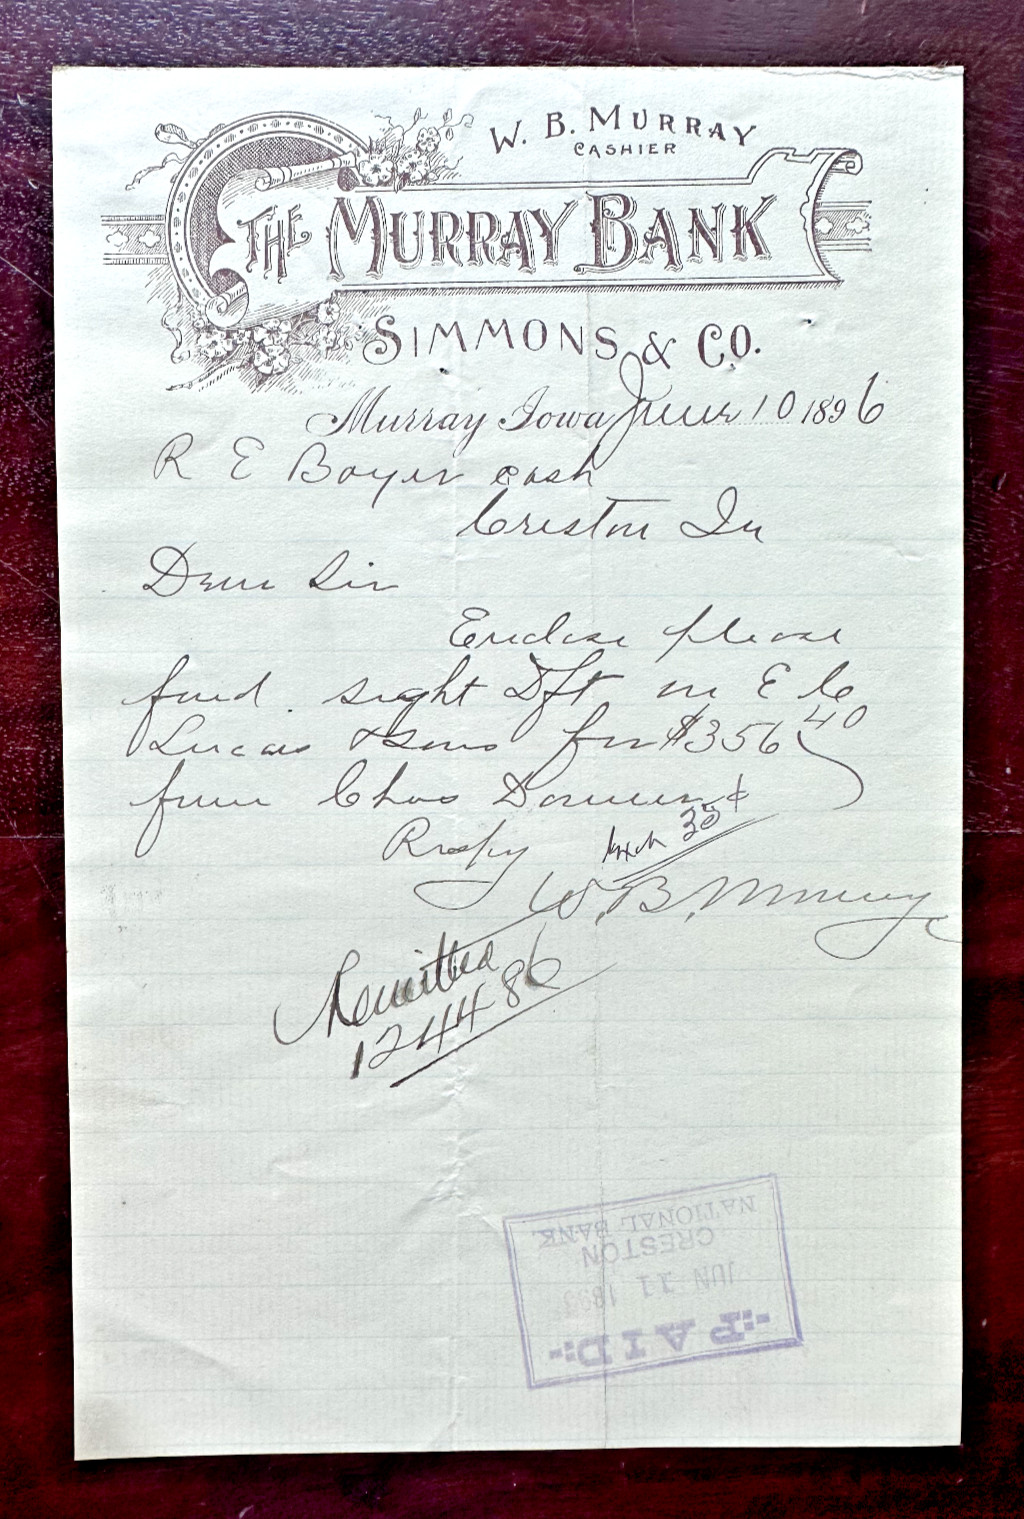 W. B. MURRAY
CASHIER
THE MURRAY BANK
SIMMONS & CO.
Murray Iowa June 10 1896
R E Boyer cash
Creston Ia
Dear Sir
Enclose please
find sight Dft on E C
Lucas & Sons for $356 40
from Chas
Respy Exch 35 ¢
W. B. Murray
Remitted
124486
PAID
JUN 11 189
CRESTON
NATIONAL BANK